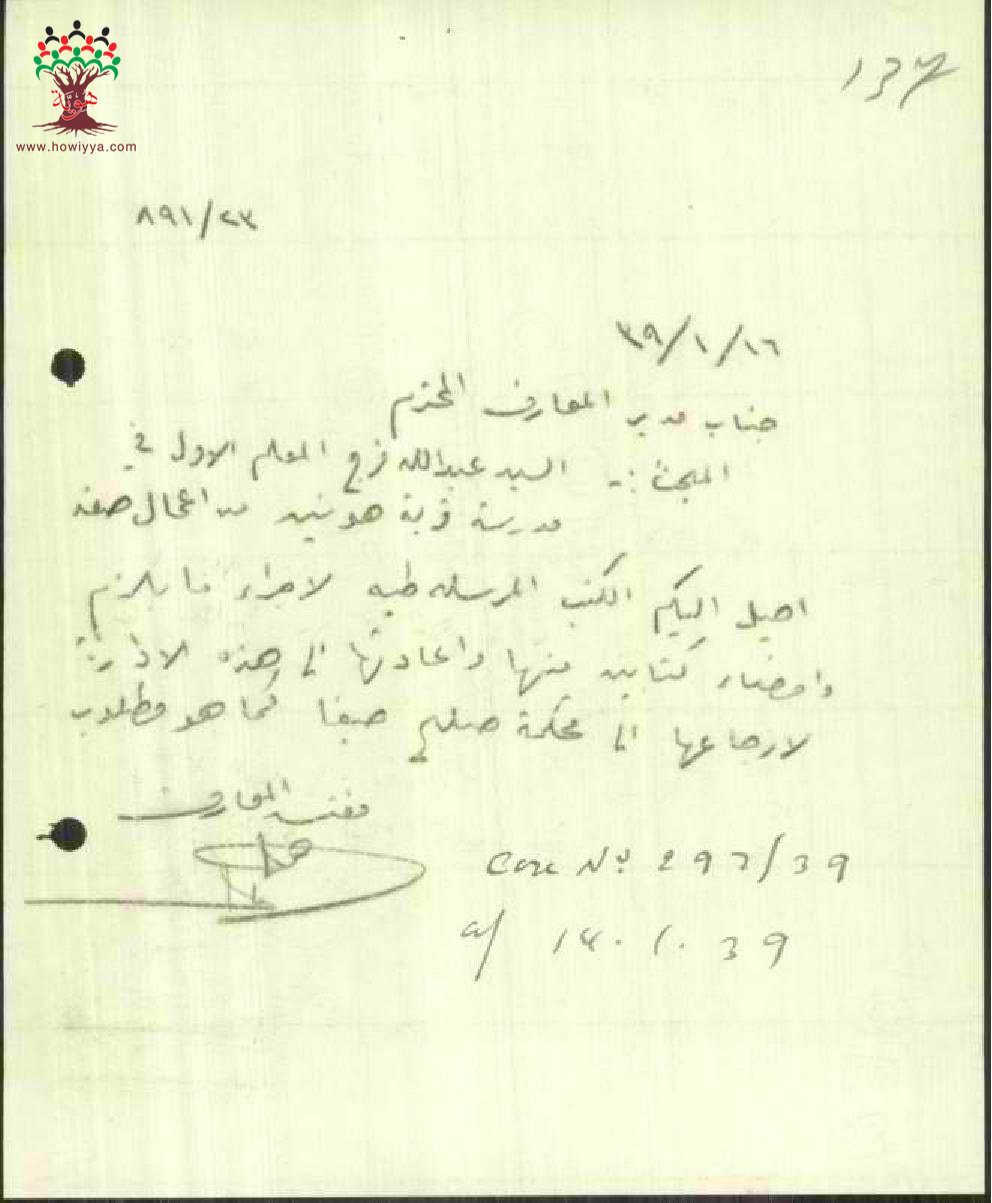 هوية
www.howiyya.com
137
٨٩١/٢٣
٣٩/١/١٦
جناب مدير المعارف المحترم
المبحث :- السيد عبدالله فرج المعلم الاول في
مدرسة قرية هونين من اعمال صفد
احيل اليكم الكتب المرسله طيه لاجراء ما يلزم
وامضاء كتابين منها واعادتها الى هذه الادارة
لارجاعها الى محكمة صلح حيفا كما هو مطلوب
مفتش المعارف
Case No. 297/39
of 14.1.39